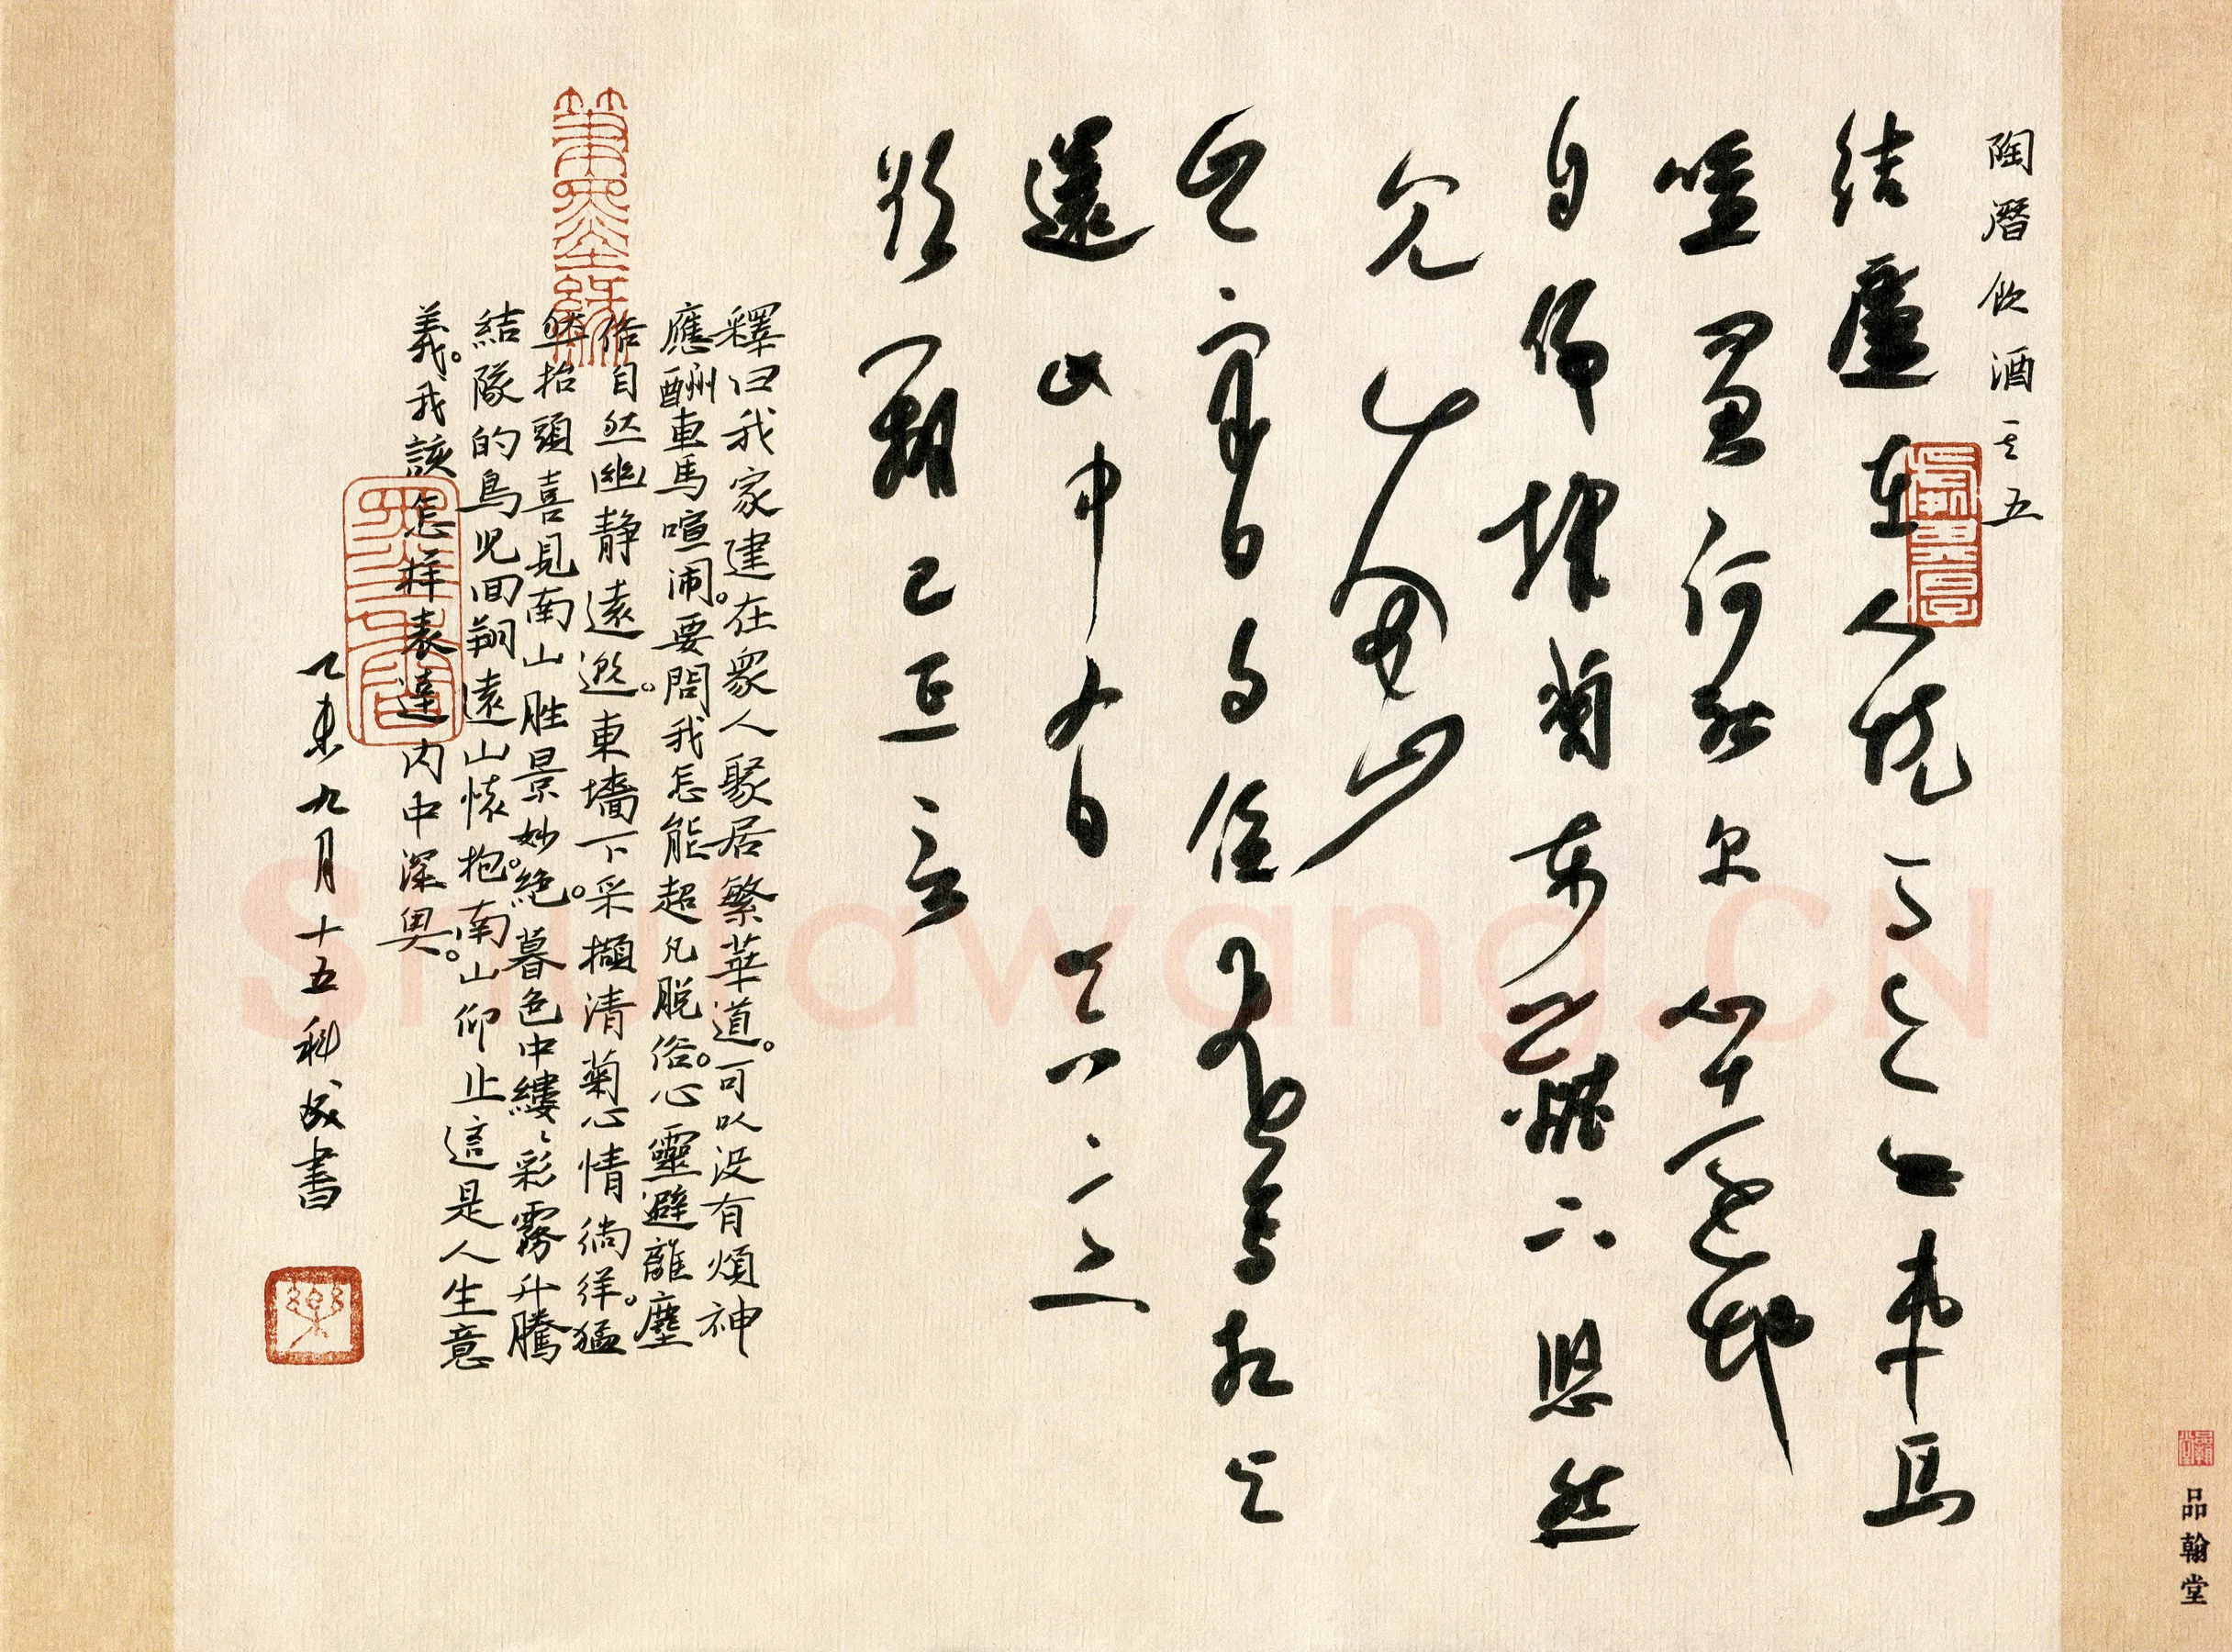 陶潛飲酒其五
结廬在人境而無車馬
喧問君何能尔心遠地
自偏採菊東籬下悠然
见南山
山氣日夕佳飛鳥相與
還此中有真意
欲辨已忘言
釋曰我家建在衆人聚居繁華道。可以没有煩神
應酬車馬喧闹。要問我怎能超凡脱俗。心靈避離塵
俗自然幽静遠邈。東墻下采擷清菊心情徜徉。猛
然抬頭喜見南山胜景妙。絶暮色中縷〻彩霧升騰
結隊的鳥兒回翔遠山懷抱。南山仰止這是人生意
義。我該怎样表達内中深奥。
乙未九月十五科成書
品翰堂